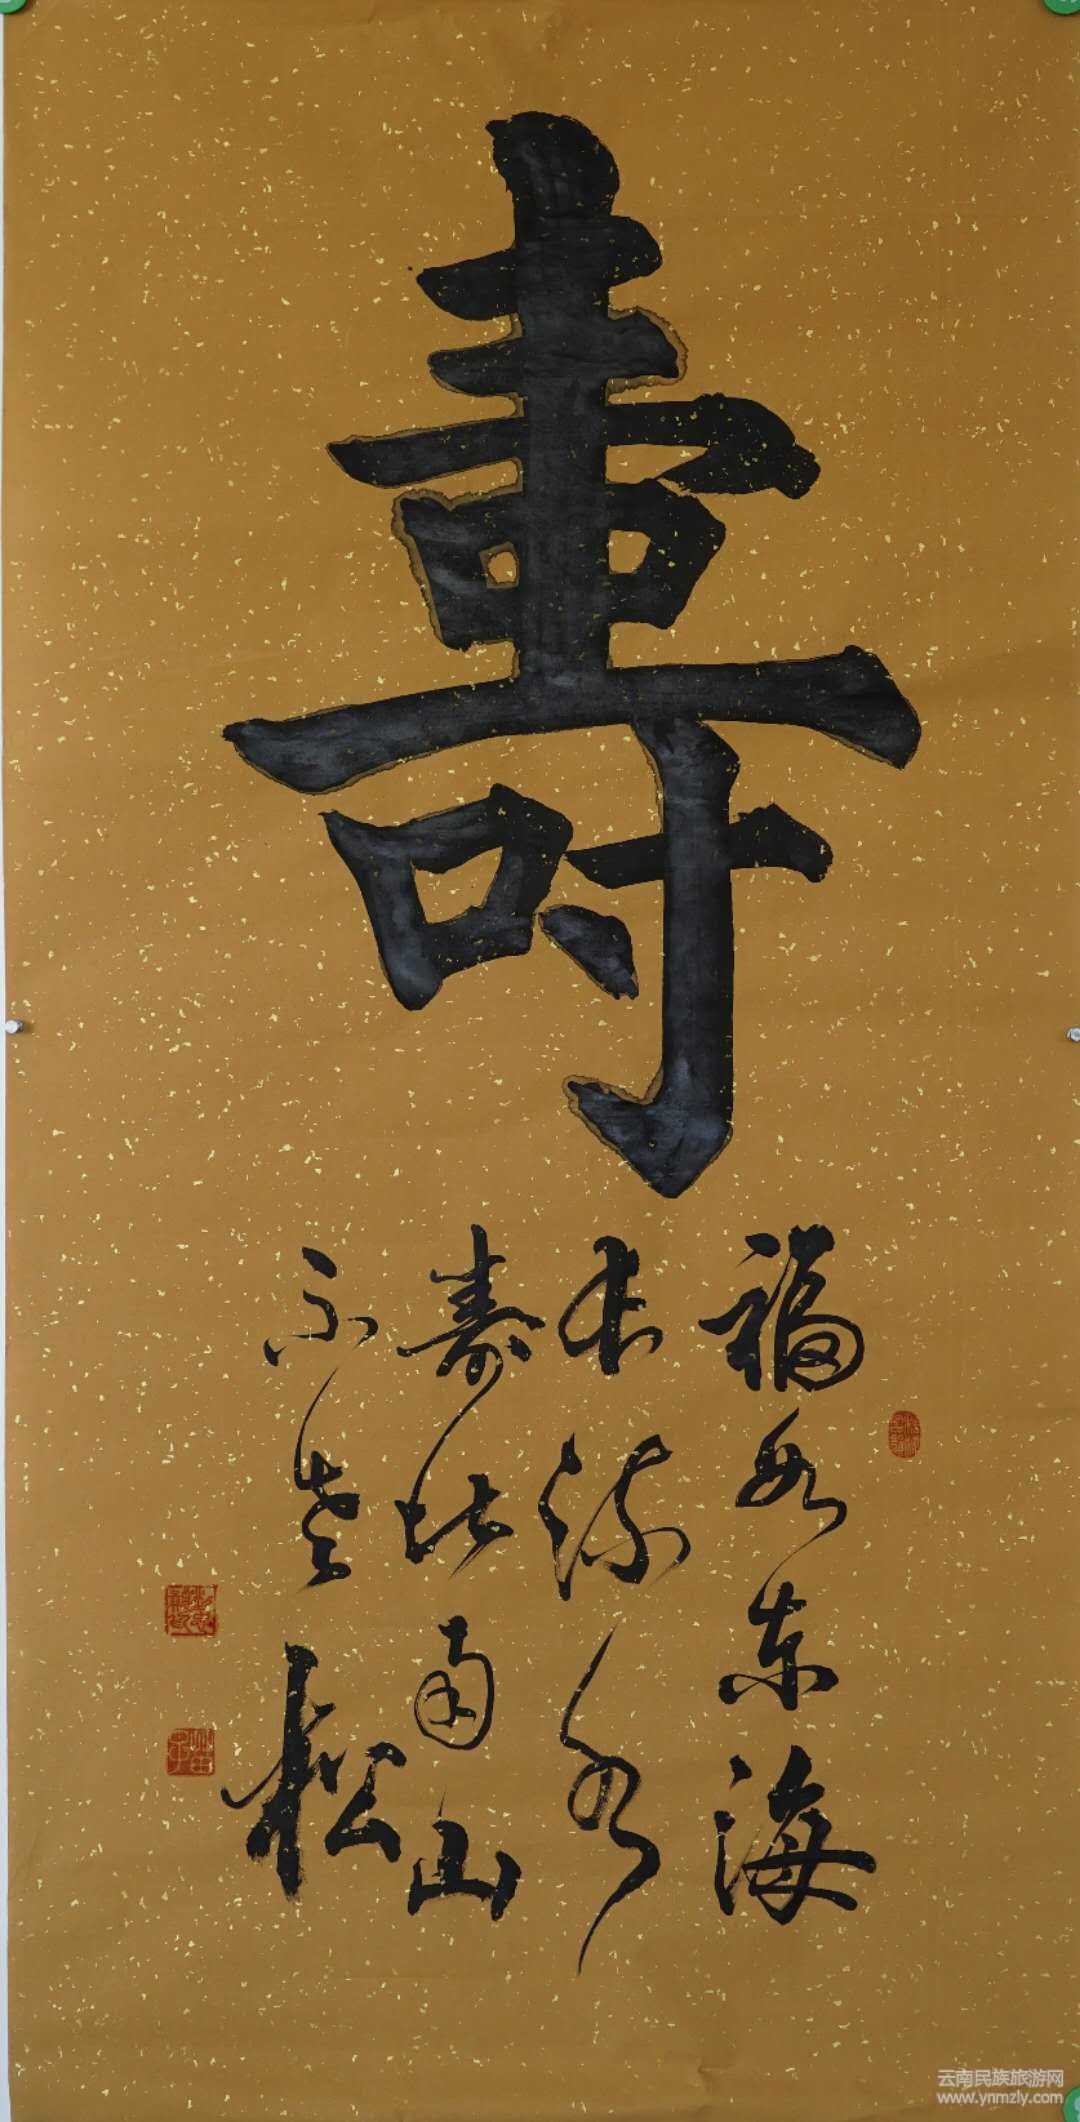 壽
福如东海
长流水
寿比南山
不老松
云南民族旅游网
www.ynmzly.com